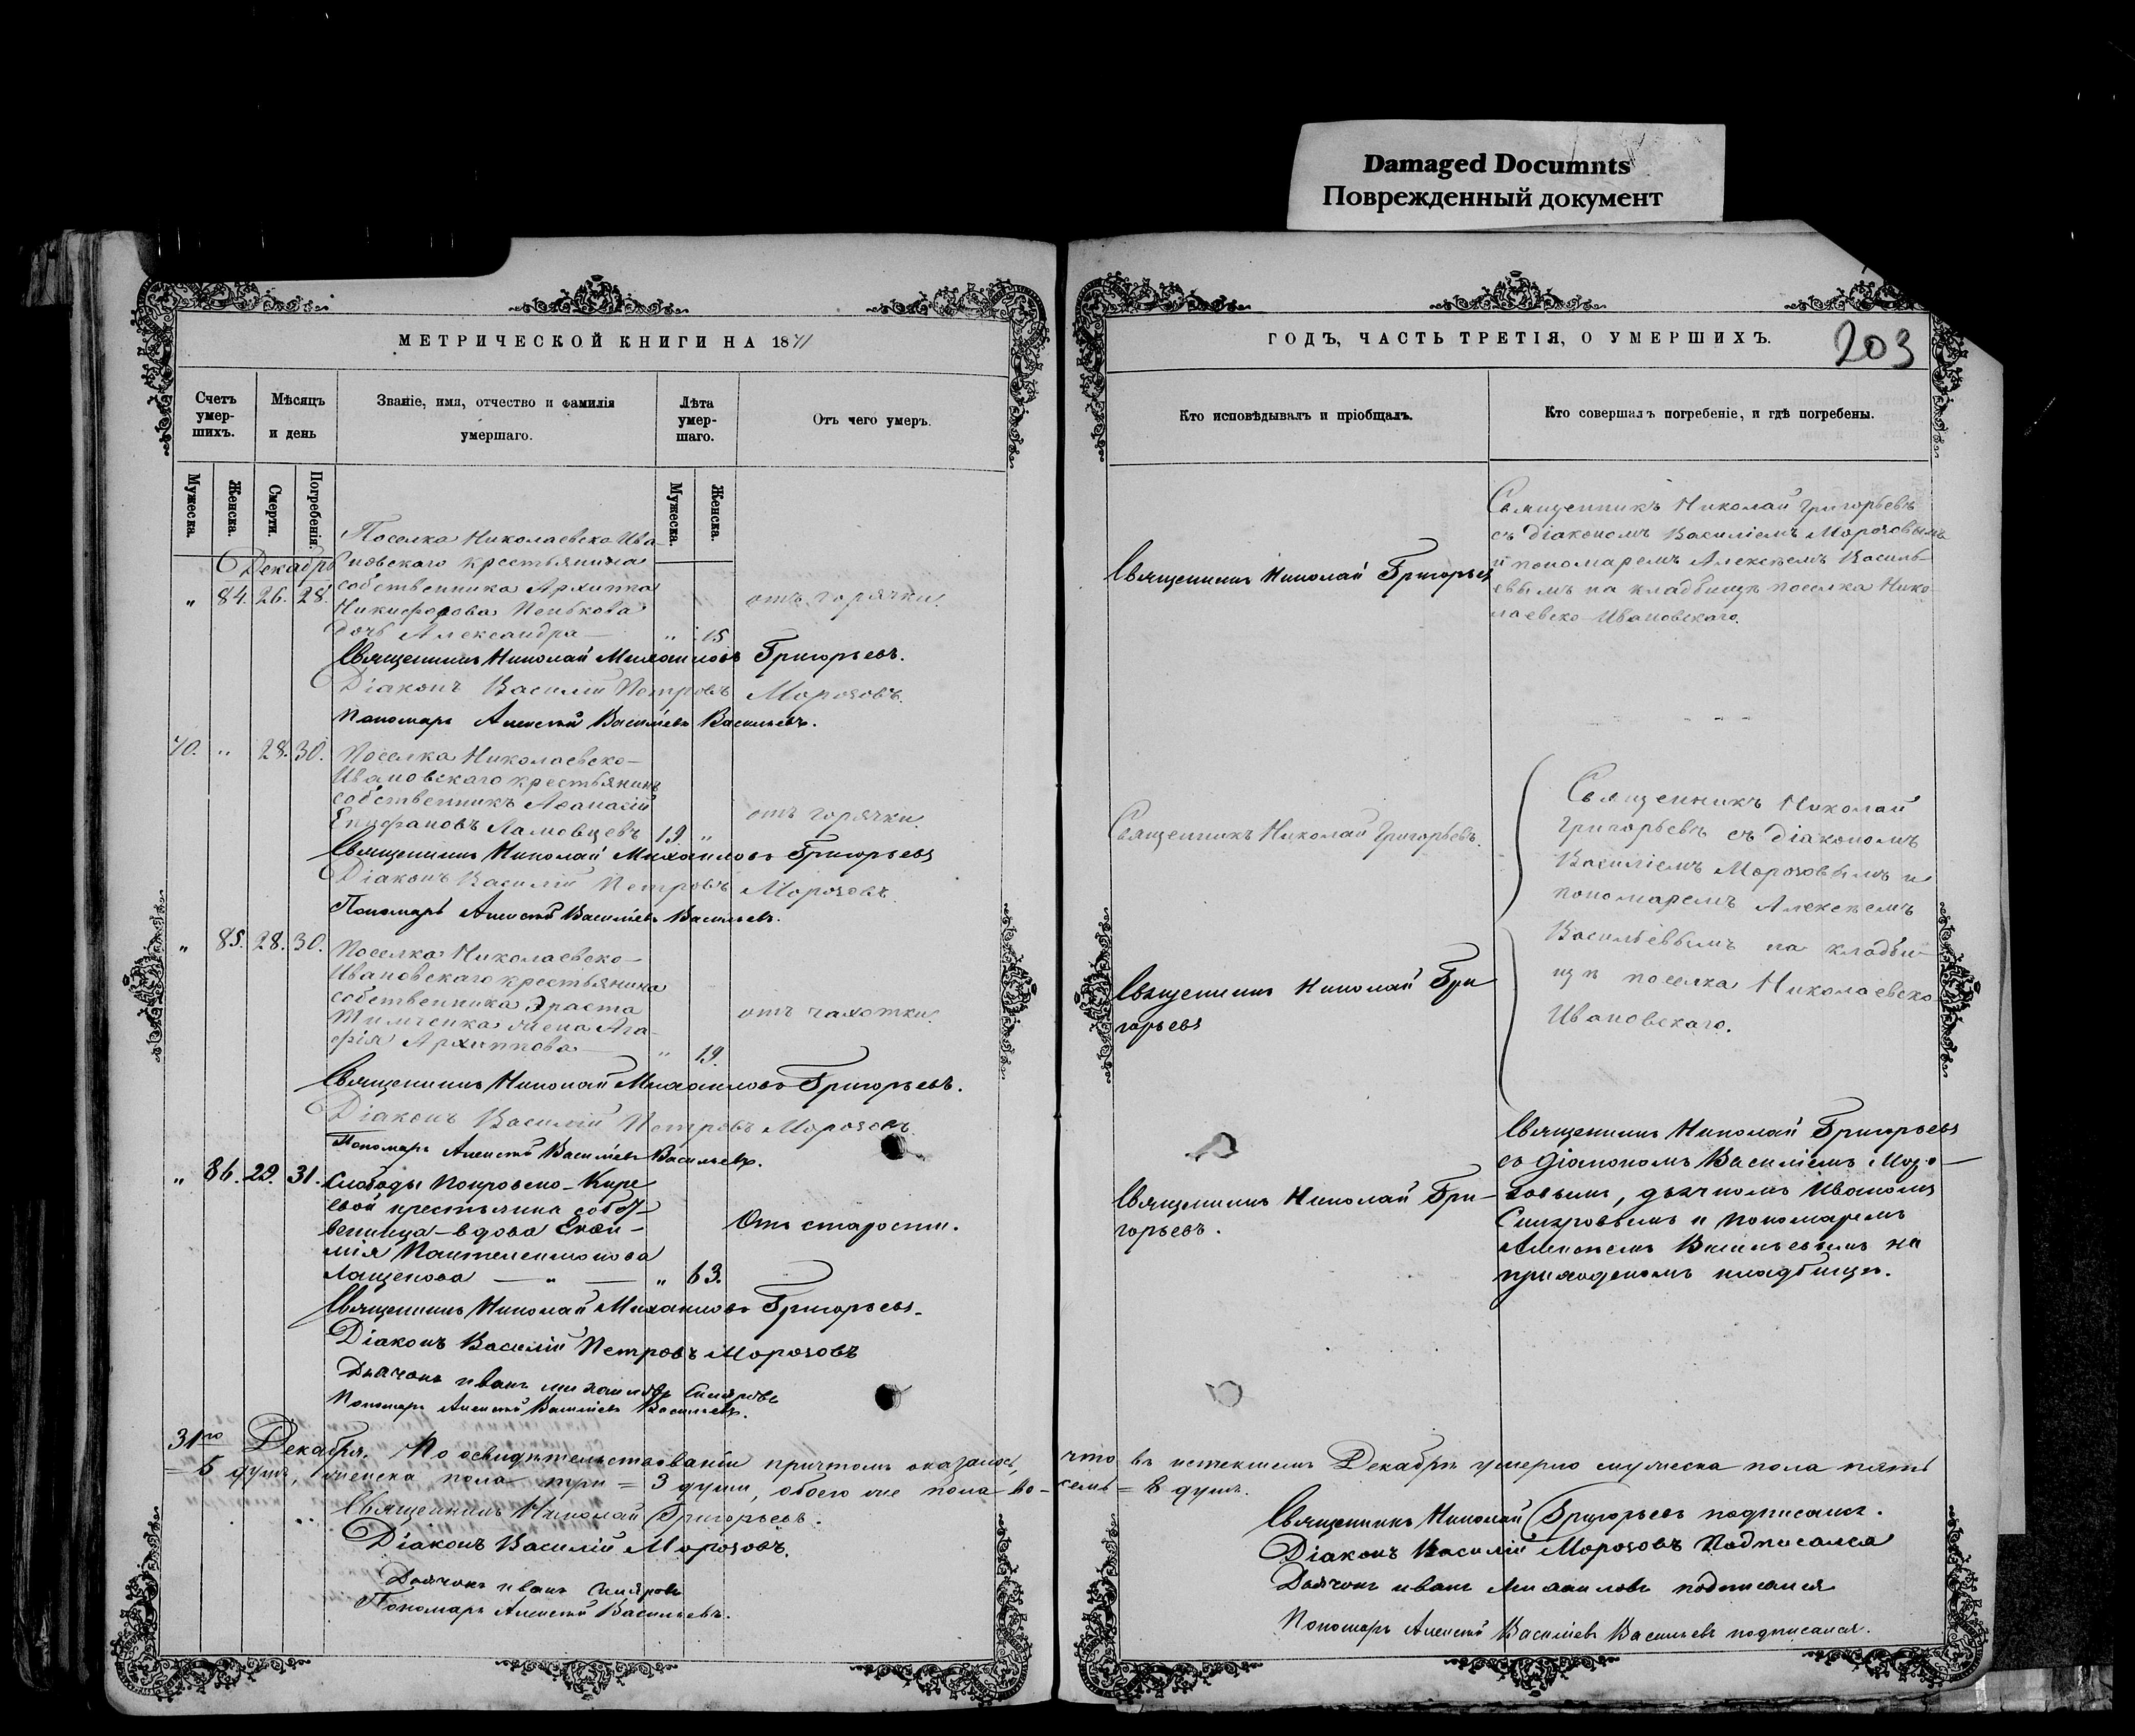 Damaged Documnts
Поврежденный документ
МЕТРИЧЕСКОЙ КНИГИ НА 1871
Счетъ умер-шихъ.
Мѣсяцъ и день
Званіе, имя, отчество и фамилія умершаго.
Лѣта умер-шаго.
Отъ чего умеръ.
Мужеска.
Женска.
Смерти.
Погребенія.
Мужеска.
Женска.
Декабрь
Поселка Николаевско-Ива-
новскаго крестьянина
собственника Архипа
„ 84. 26. 28.
Никифорова Пенькова
дочь Александра — „ 15
отъ горячки.
Священникъ Николай Михаиловъ Григорьевъ.
Діаконъ Василій Петровъ Морозовъ.
Пономарь Алексѣй Васильевъ Васильевъ.
70. „ 28. 30. Поселка Николаевско-
Ивановскаго крестьянинъ
собственникъ Аѳанасій
Епифановъ Ламовцевъ 19 „
отъ горячки.
Священникъ Николай Михаиловъ Григорьевъ
Діаконъ Василій Петровъ Морозовъ
Пономарь Алексѣй Васильевъ Васильевъ.
„ 85. 28. 30. Поселка Николаевско-
Ивановскаго крестьянина
собственника Эраста
Тимченка жена Ага-
фія Архиппова — „ 19
отъ чахотки.
Священникъ Николай Михаиловъ Григорьевъ.
Діаконъ Василій Петровъ Морозовъ
Пономарь Алексѣй Васильевъ Васильевъ.
„ 86. 29. 31. Слободы Покровско-Кире
евой крестьянина собст
венница-вдова
мія Пантелеимонова
Лащенова — „ — „ 63.
Отъ старости.
Священникъ Николай Михаиловъ Григорьевъ.
Діаконъ Василій Петровъ Морозовъ
Дьячокъ Иванъ Михаиловъ
Пономарь Алексѣй Васильевъ Васильевъ.
31го Декабря. По освидѣтельствованіи причтомъ оказалось,
= 5 душъ, женска пола три = 3 души, обоего же пола во-
Священникъ Николай Григорьевъ.
Діаконъ Василій Морозовъ.
Дьячокъ Иванъ
Пономарь Алексѣй Васильевъ.
ГОДЪ, ЧАСТЬ ТРЕТІЯ, О УМЕРШИХЪ.
203
Кто исповѣдывалъ и пріобщалъ.
Кто совершалъ погребеніе, и гдѣ погребены.
Священникъ Николай Григорьев
Священникъ Николай Григорьевъ
съ діакономъ Василіемъ Морозовымъ
и пономаремъ Алексѣемъ Василь-
евымъ на кладбищѣ поселка Нико-
лаевско-Ивановскаго.
Священникъ Николай Григорьевъ.
Священникъ Николай
Григорьевъ съ діакономъ
Василіемъ Морозовымъ и
пономаремъ Алексѣемъ
Васильевымъ на кладби-
щѣ поселка Николаевско-
Ивановскаго.
Священникъ Николай Гри
горьевъ
Священникъ Николай Гри-
горьевъ.
Священникъ Николай Григорьевъ
съ діакономъ Василіемъ Моро-
зовымъ, дьячкомъ Иваномъ
и пономаремъ
Алексѣемъ Васильевымъ на
приходскомъ кладбищѣ.
что въ истекшемъ Декабрѣ умерло мужеска пола пять
семь = 8 душъ.
Священникъ Николай Григорьевъ подписался.
Діаконъ Василій Морозовъ Подписался
Дьячокъ Иванъ Михаиловъ подписался
Пономарь Алексѣй Васильевъ Васильевъ подписался.